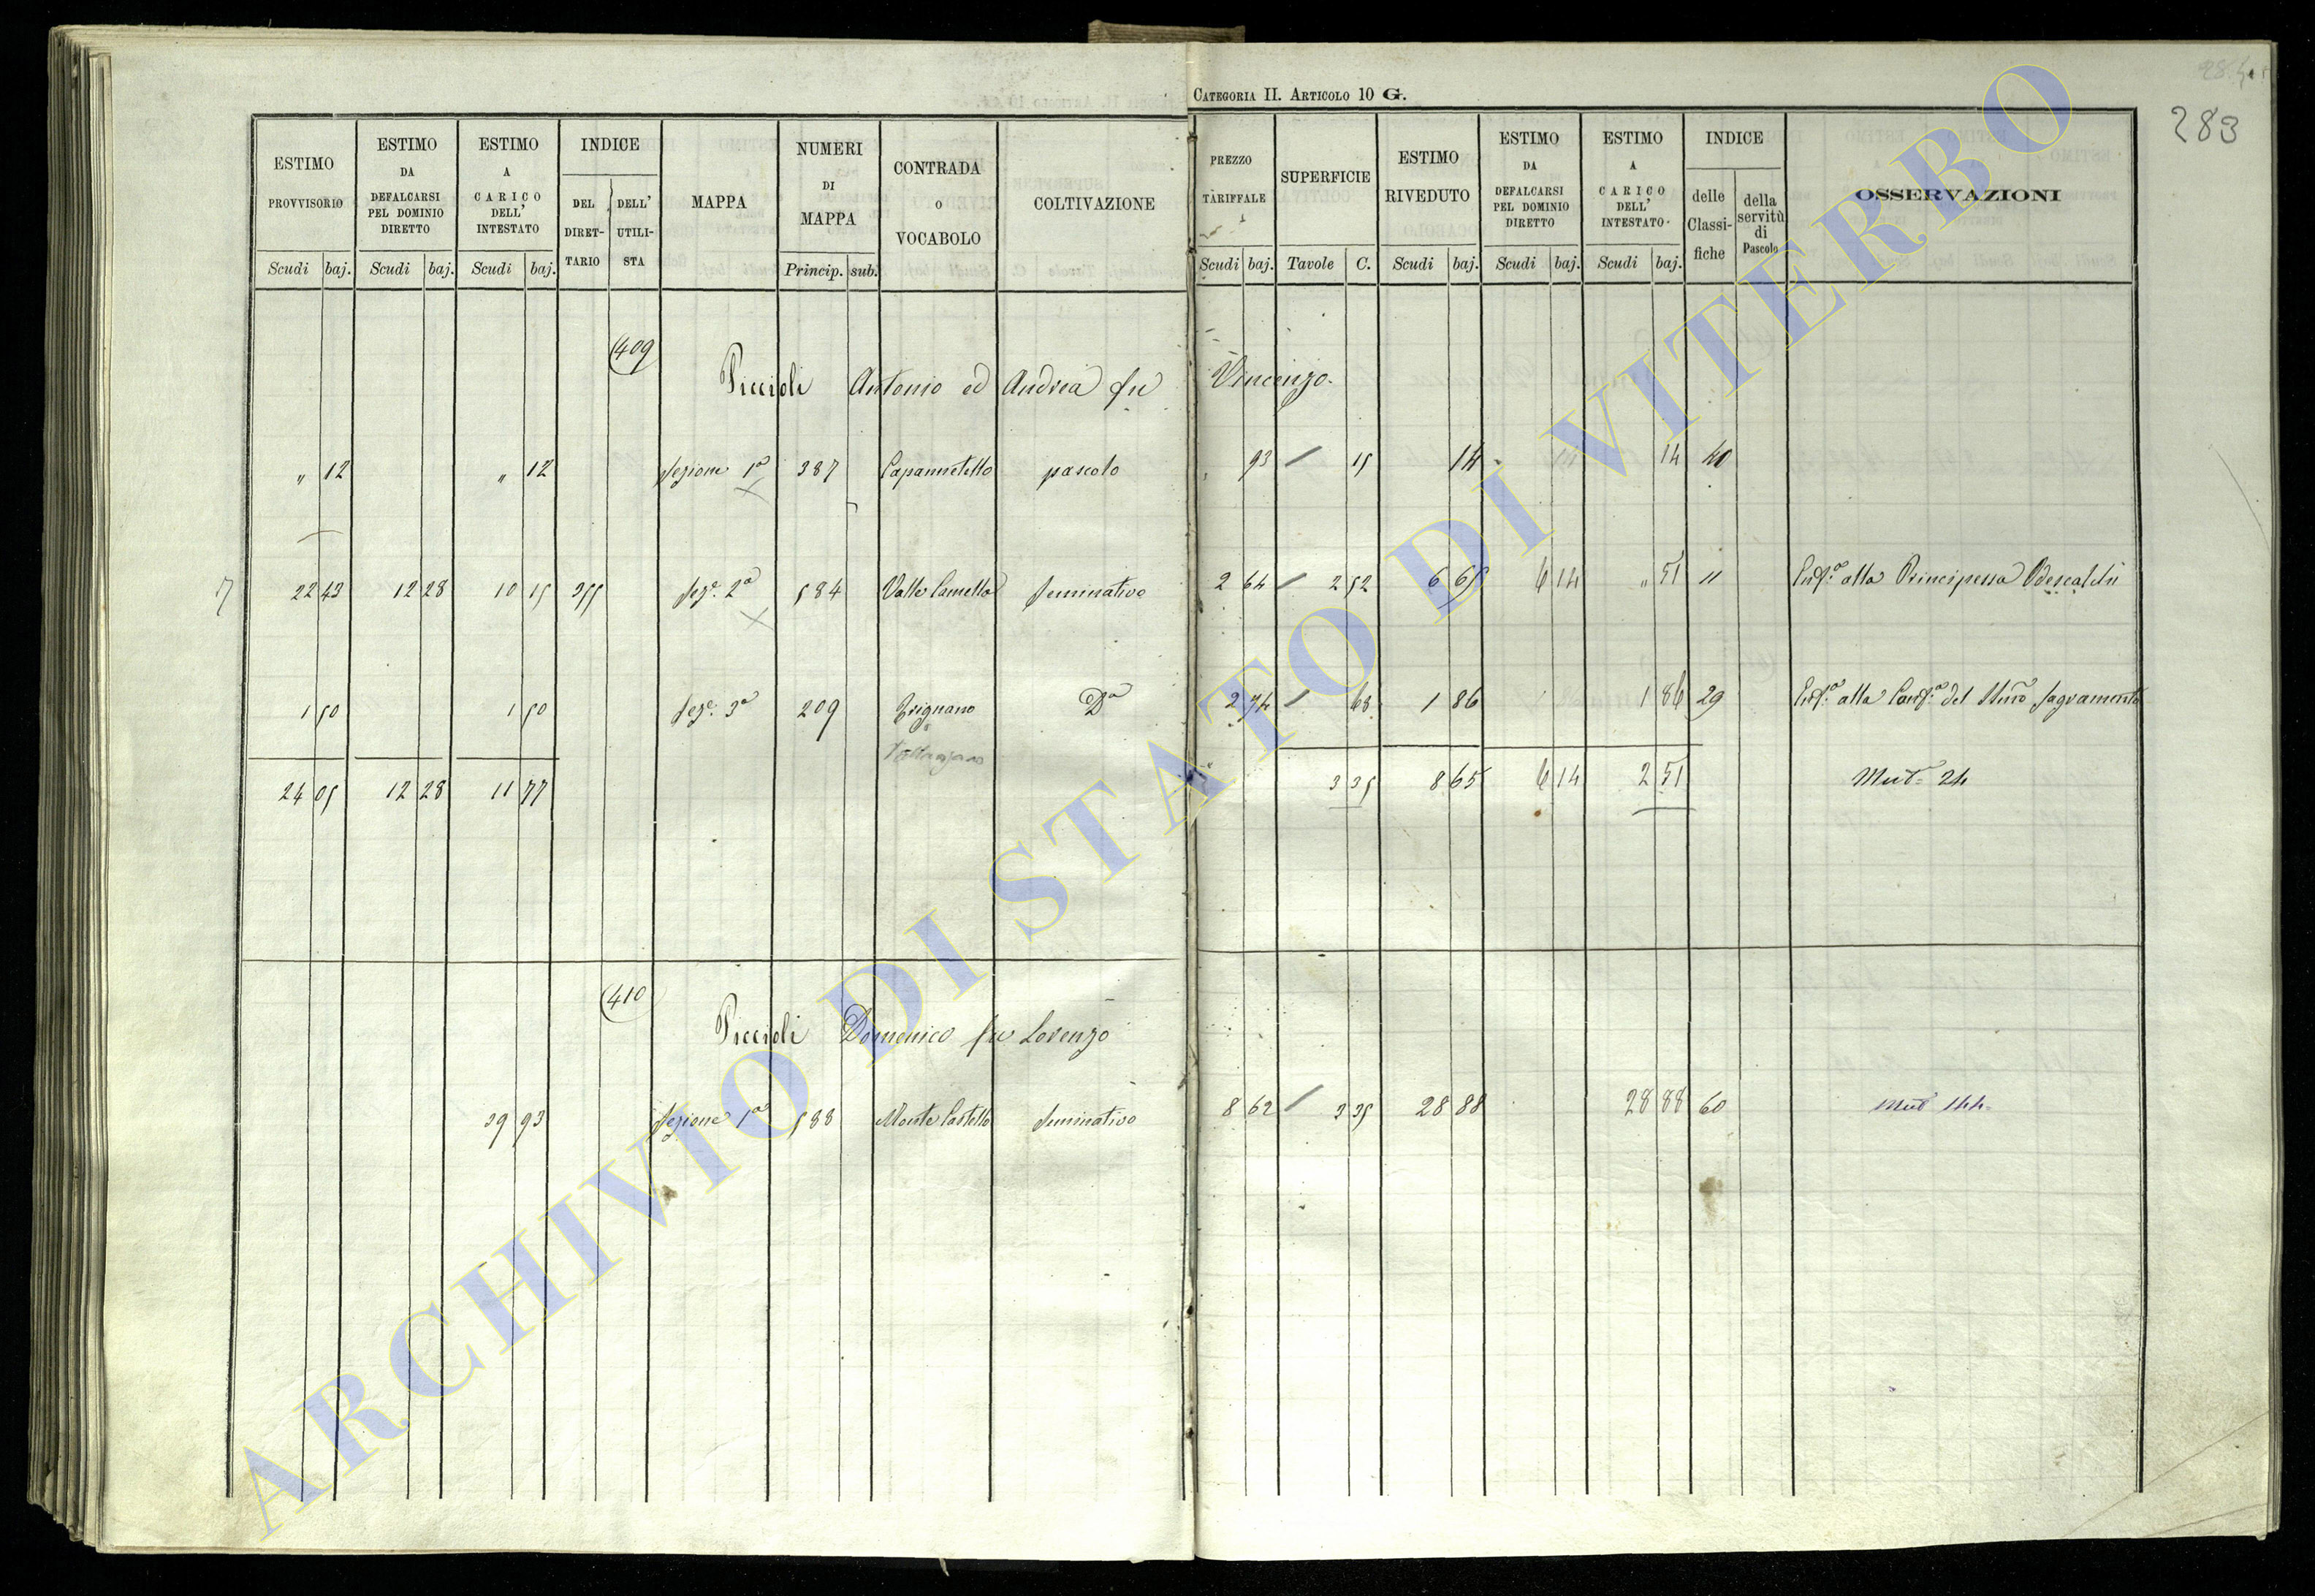 CATEGORIA II. ARTICOLO 10 G.
283
ESTIMO PROVVISORIO
Scudi baj.
ESTIMO DA DEFALCARSI PEL DOMINIO DIRETTO
Scudi baj.
ESTIMO A CARICO DELL' INTESTATO
Scudi baj.
INDICE
DEL DIRET-TARIO
DELL' UTILI-STA
MAPPA
NUMERI DI MAPPA
Princip. sub.
CONTRADA O VOCABOLO
COLTIVAZIONE
PREZZO TARIFFALE
Scudi baj.
SUPERFICIE
Tavole C.
ESTIMO RIVEDUTO
Scudi baj.
ESTIMO DA DEFALCARSI PEL DOMINIO DIRETTO
Scudi baj.
ESTIMO A CARICO DELL' INTESTATO
Scudi baj.
INDICE
delle Classi-fiche
della servitù di Pascolo
OSSERVAZIONI
409
Piccioli Antonio ed Andrea fu Vincenzo
" 12 " 12 Sezione 1a 387 Capannetello pascolo 93 / 15 14 14 14 40
22 43 12 28 10 15 355 Seze. 2a 584 Valle Camella Seminativo 2 64 / 2 52 6 65 6 14 " 51 11 Enfa. alla Principessa Odescalchi
1 50 1 50 Seze. 3a 209 Trignano Da 2 74 / 68 1 86 1 86 29 Enfa. alla Confa. del SSmo Sagramento
24 05 12 28 11 77 3 35 8 65 6 14 2 51 Mut. 24
410
Piccioli Domenico fu Lorenzo
39 93 Sezione 1a 588 Monte Castello Seminativo 8 62 / 3 35 28 88 28 88 60 Mut 144
ARCHIVIO DI STATO DI VITERBO